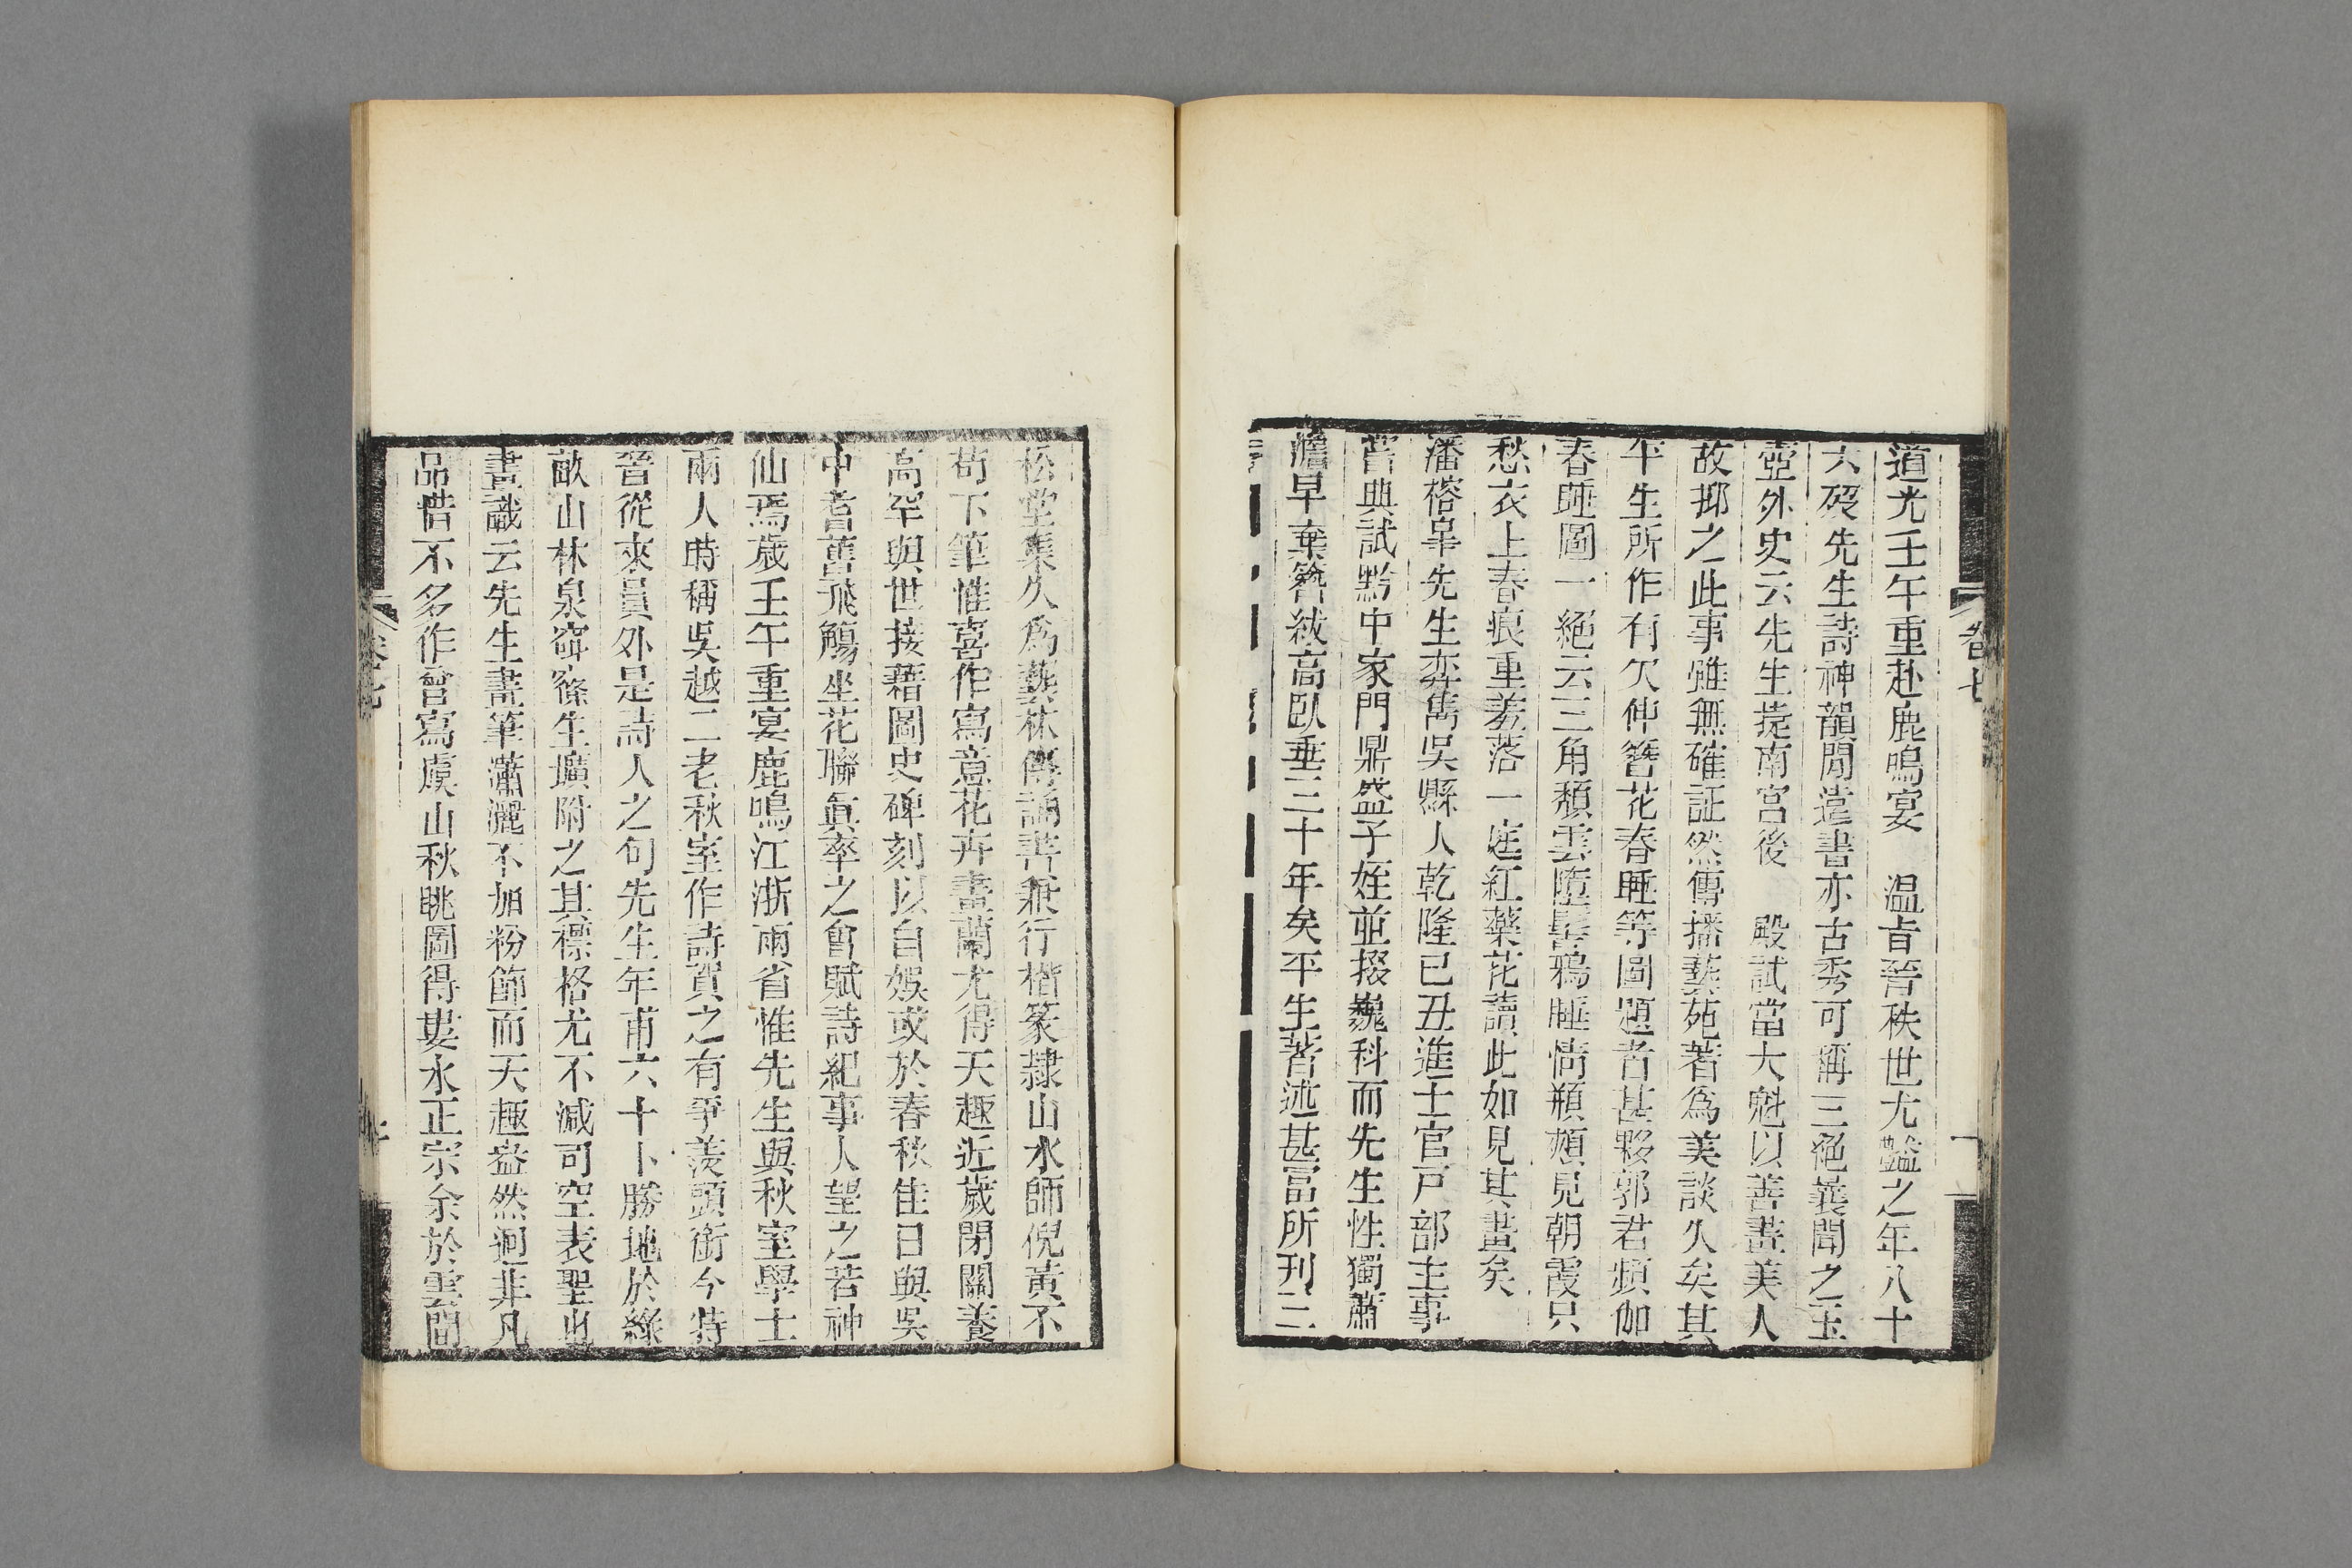 道光壬午重赴鹿鳴宴　溫旨晉秩世尤豔之年八十
六歿先生詩神韻閒遠書亦古秀可稱三絕曩聞之玉
壺外史云先生捷南宮後　殿試當大魁以善畫美人
故抑之此事雖無確証然傳播藝苑著爲美談久矣其
平生所作有欠伸簪花春睡等圖題者甚夥郭君頻伽
春睡圖一絕云三角頹雲墮髻鴉睡情頩頰見朝霞只
愁衣上春痕重羞落一庭紅藥花讀此如見其畫矣
潘榕皋先生奕雋吳縣人乾隆己丑進士官戶部主事
嘗典試黔中家門鼎盛子姪並掇巍科而先生性獨蕭
澹早棄簪紱高臥垂三十年矣平生著述甚富所刊三
卷七
松堂集久爲藝林傳誦善兼行楷篆隸山水師倪黃不
苟下筆惟喜作寫意花卉畫蘭尤得天趣近歲閉關養
高罕與世接藉圖史碑刻以自娛或於春秋佳日與吳
中耆舊飛觴坐花聯眞率之會賦詩紀事人望之若神
仙焉歲壬午重宴鹿鳴江浙兩省惟先生與秋室學士
兩人時稱吳越二老秋室作詩賀之有爭羨頭銜今特
晉從來員外是詩人之句先生年甫六十卜勝地於綠
畝山林泉窅窱生壙附之其標格尤不減司空表聖也
畫識云先生畫筆瀟灑不加粉節而天趣盎然迥非凡
品惜不多作曾寫虞山秋眺圖得婁水正宗余於雲間
卷七